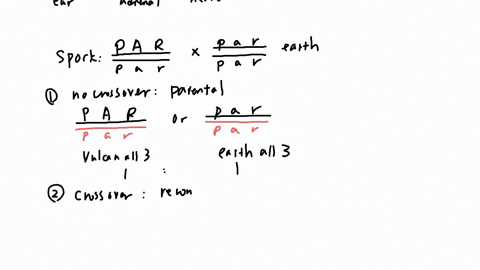 ear
Spork: P A R x p a r earth
p a r p a r
① no crossover: parental
P A R or p a r
p a r p a r
Vulcan all 3 earth all 3
1 : 1
② crossover: recon